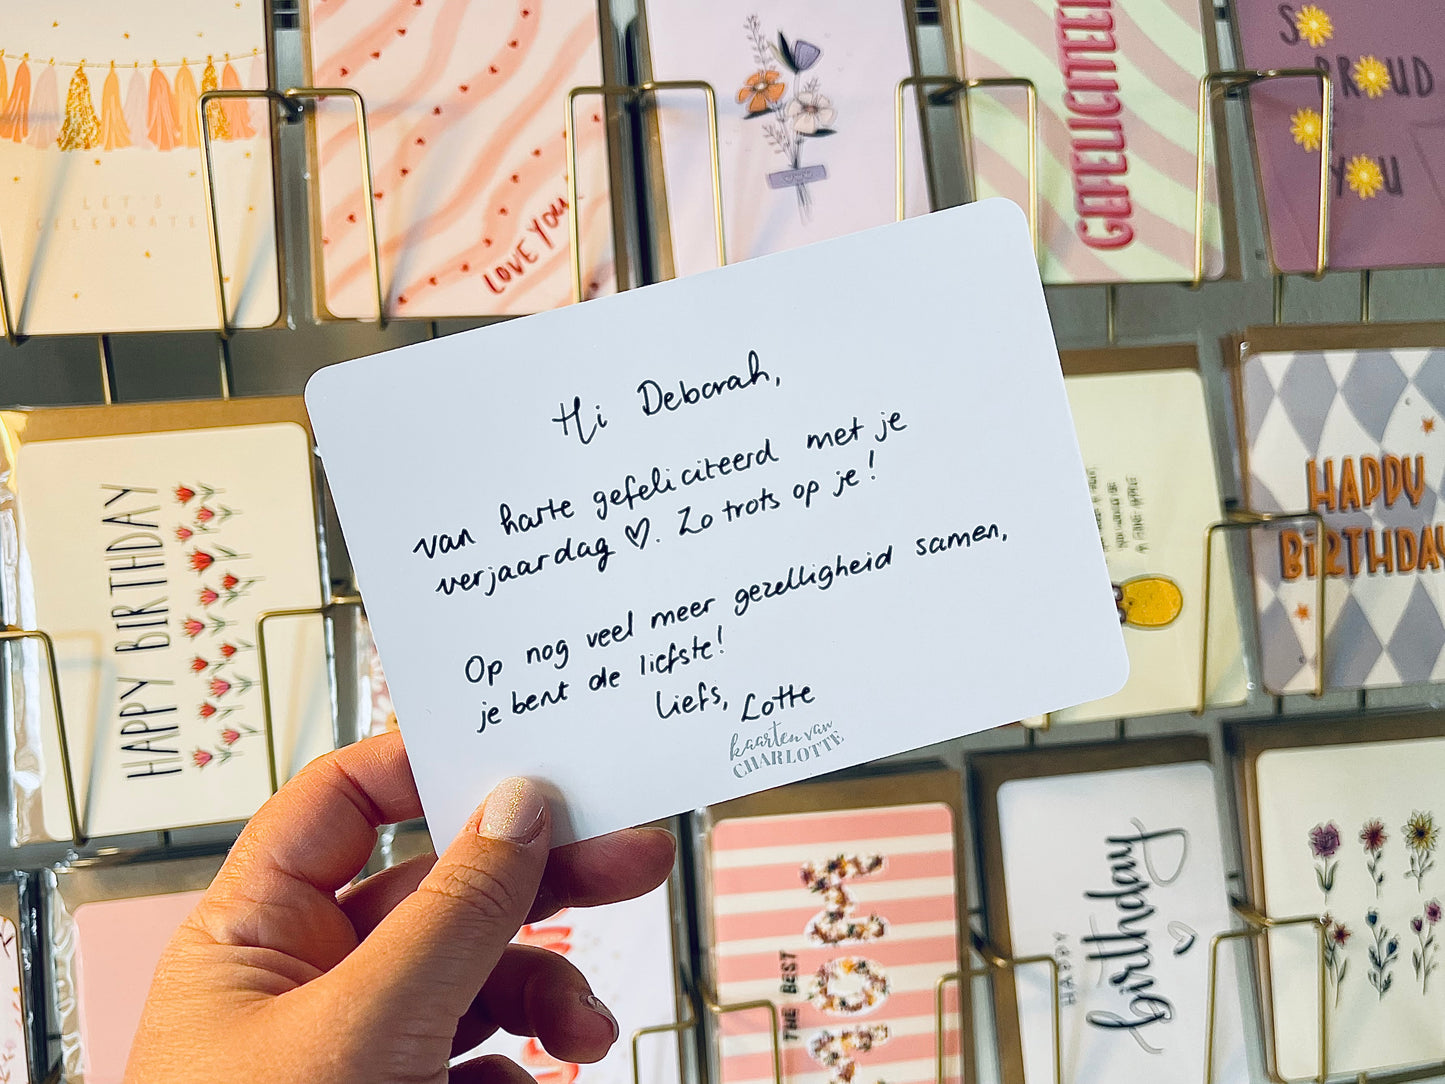 LET'S
CELEBRATE
LOVE YOU
GEFELICITEERD
SO
PROUD
OF
YOU
Hi Deborah,
van harte gefeliciteerd met je
verjaardag ♡. Zo trots op je!
Op nog veel meer gezelligheid samen,
je bent de liefste!
Liefs, Lotte
kaarten van
CHARLOTTE
HAPPY BIRTHDAY
HAPPY
BIRTHDAY
THE BEST
MOM
HAPPY
birthday